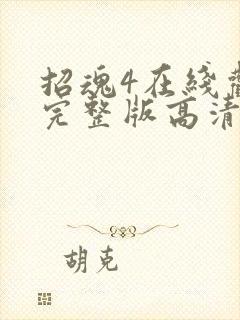 招魂4在线
完整版高清
胡克